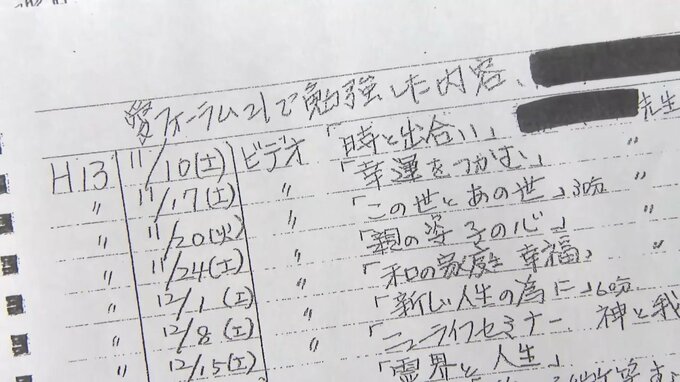 愛フォーラム21で勉強した内容、
H13 11/10(土) ビデオ 「時と出合い」 先生
〃 11/17(土) 〃 「幸運をつかむ」 〃
〃 11/20(火) 〃 「この世とあの世」30分 〃
〃 11/24(土) 〃 「親の姿子の心」 〃
〃 12/1(土) 〃 「和の家庭と幸福」 〃
〃 12/8(土) 〃 「新しい人生の為に」60分
〃 12/15(土) 〃 「ニューライフセミナー 神と我
「霊界と人生」